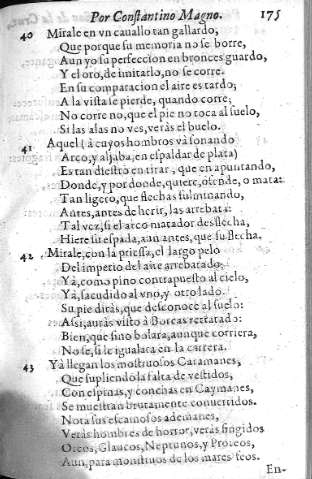 Por Constantino Magno. 175
40 Mirale en vn cauallo tan gallardo,
Que porque su memoria no se borre,
Aun yo su perfeccion en bronces guardo,
Y el oro, de imitarlo, no se corre.
En su comparacion el aire es tardo;
A la vista se pierde, quando corre;
No corre no, que el pie no toca al suelo,
Si las alas no ves, verás el buelo.
41 Aquel (à cuyos hombros và sonando
Arco, y aljaba, en espaldar de plata)
Es tan diestro en tirar, que en apuntando,
Donde, y por donde, quiere, ofende, o mata:
Tan ligero, que flechas fulminando,
Antes, antes de herir, las arrebata:
Tal vez, si el arco matador desflecha,
Hiere su espada, aun antes, que su flecha.
42 Mirale, con la priessa, el largo pelo
Del imperio del aire arrebatado;
Yà, como pino contrapuesto al cielo,
Yà, sacudido al vno, y otro lado.
Su pie diràs, que desconoce al suelo:
Assi, auràs visto à Boreas retratado:
Bien, que sino bolara, aunque corriera,
No se, si le igualara en la carrera.
43 Yà llegan los mostruosos Caramanes,
Que supliendo la falta de vestidos,
Con espinas, y conchas en Caymanes,
Se muestran brutamente conuertidos.
Nota sus escamosos ademanes,
Veràs hombres de horror, veràs fingidos
Glaucos, Neptunos, y Proteos,
Aun, para monstruos de los mares feos.
En-